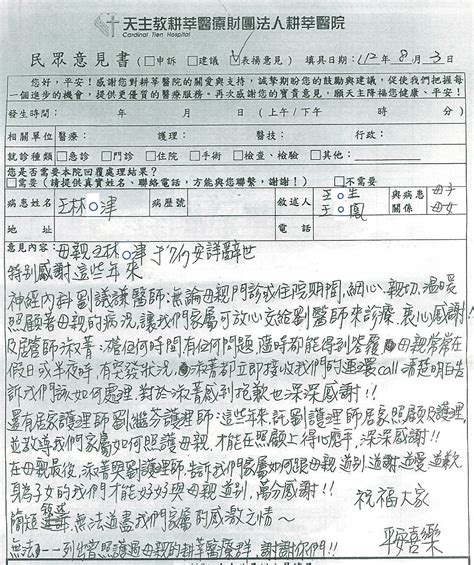 天主教耕莘醫療財團法人耕莘醫院
Cardinal Tien Hospital
民眾意見書(□申訴 □建議 ☑表揚意見) 填具日期:112年8月3日
您好,平安!感謝您對耕莘醫院的關愛與支持,誠摯期盼您的鼓勵與建議,促使我們把握每
一個進步的機會,提供更優質的醫療服務。再次感謝您的寶貴意見,願天主降福您健康、平安!
發生時間: 年 月 日(上午/下午 時 分)
相關單位 醫療: 護理: 醫技: 行政:
就診種類 □急診 □門診 □住院 □手術 □檢查、檢驗 □其他:
您是否需要本院回覆處理結果?
□需要(請提供真實姓名、聯絡電話,方能與您聯繫,謝謝!) □不需要
病患姓名 王林○津 病歷號 敘述人 王○生 王○鳳 與病患關係 母子 母女
地址 電話
意見內容:母親王林○津于7/ 安詳辭世
特別感謝這些年來
神經內科劉議謙醫師:無論母親門診或住院期間,細心、親切、溫暖
照顧著母親的病況,讓我們家屬可放心交給劉醫師來診療,衷心感謝!
及居管師淑菁:碰任何時間有任何問題,隨時都能得到答覆,母親常常在
假日或半夜時,有突發狀況,淑菁都立即接收我們的連環call清楚明白告
訴我們該如何處理,對於淑菁感到抱歉也深深感謝!!
還有居家護理師劉繼芬護理師:這些年來,託劉護理師居家照顧及護理,
並教導我們家屬如何照護母親,才能在照顧上得心應手,深深感謝!!
在母親最後,淑菁與劉護理師,告訴我們家屬如何跟母親道別、道謝、道愛、道歉,
身為子女的我們才能好好與母親道別,萬分感謝!!
簡短 無法道盡我們家屬的感激之情~
無法一一列出照護過母親的耕莘醫療群,謝謝你們!!
祝福大家
平安喜樂